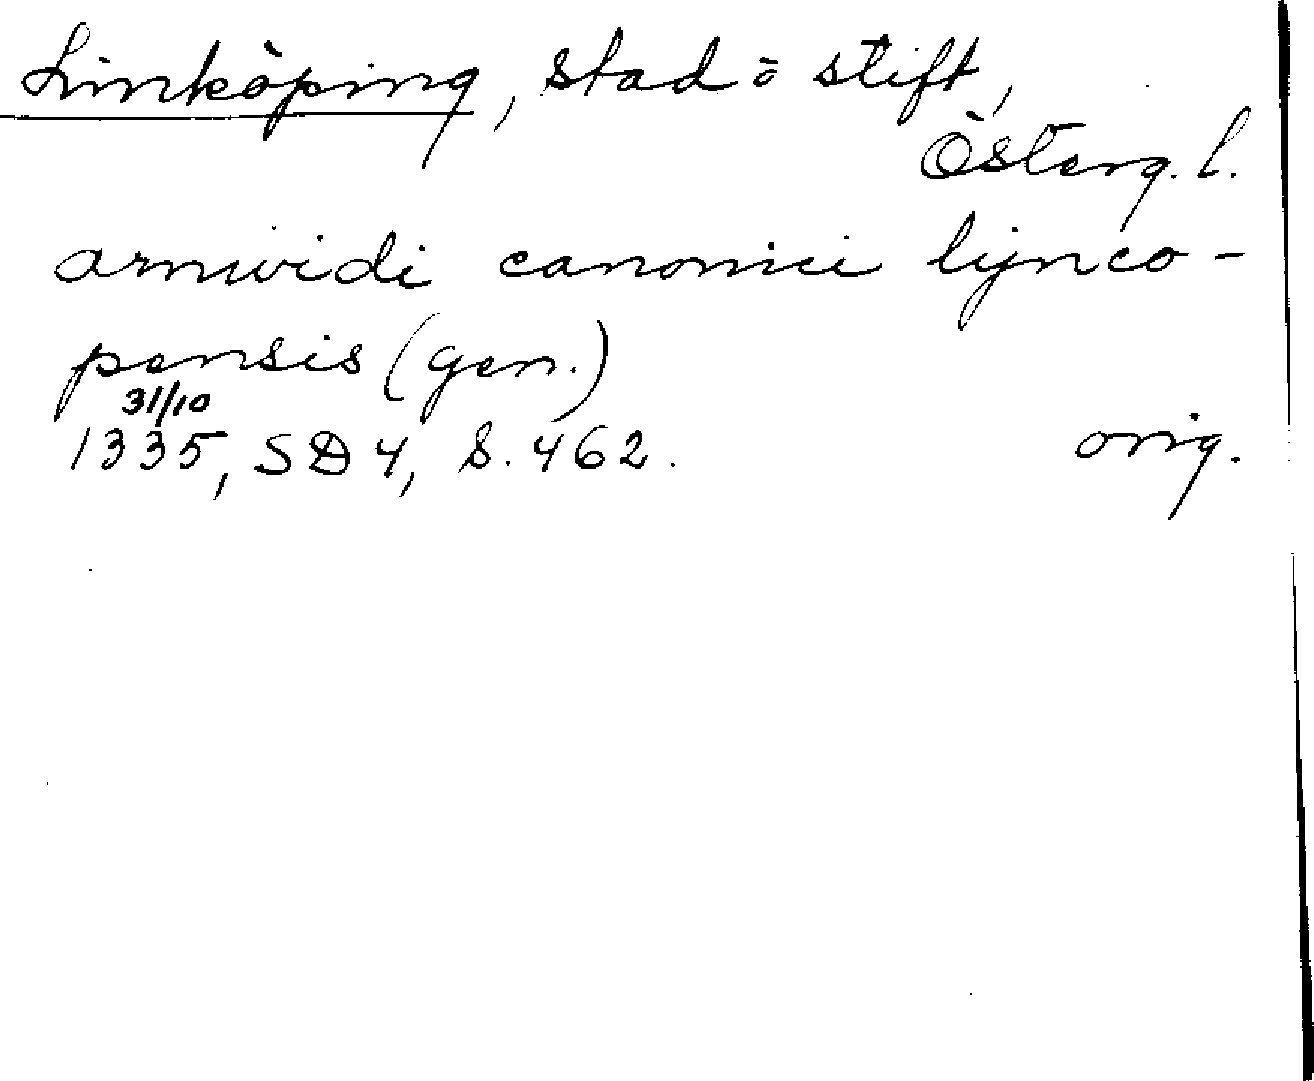 Linköping, stad o stift,
Österg. l.
arnuidi canonici lijnco-
pensis (gen.)
31/10
1335, SD 4, S. 462. orig.